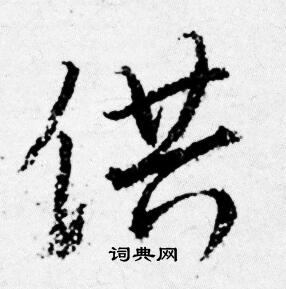 供
词典网